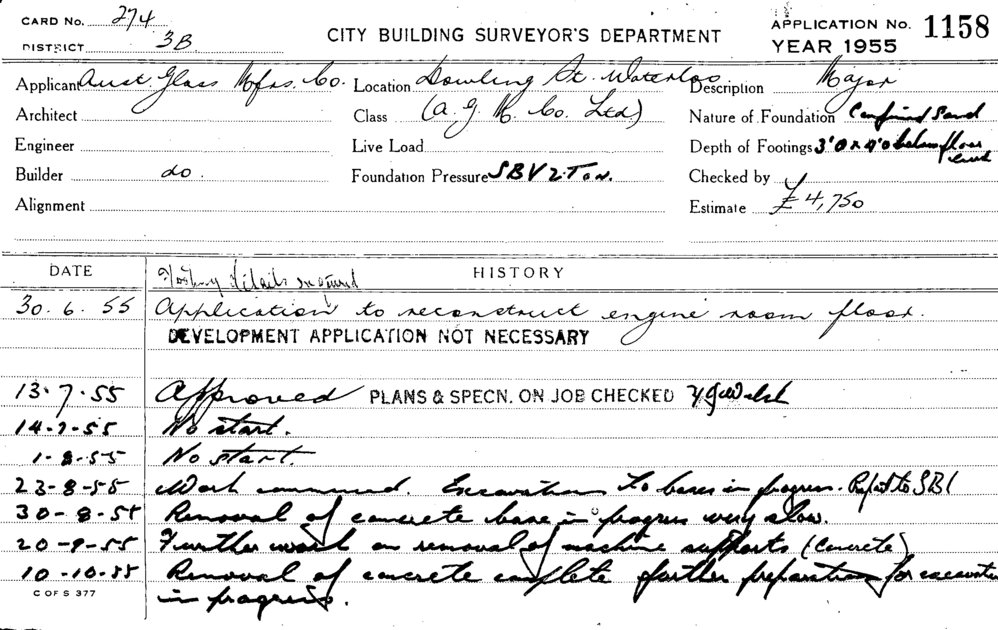 CARD No. 274
DISTRICT 3B
CITY BUILDING SURVEYOR'S DEPARTMENT
APPLICATION No. 1158
YEAR 1955
Applicant Aust. Glass Mfrs. Co. Location Dowling St. Waterloo Description Major
Architect Class (A. G. M. Co. Ltd) Nature of Foundation Confined Sand
Engineer Live Load Depth of Footings 3'0 x 4'0 below floor level
Builder do. Foundation Pressure SBV 2 Ton. Checked by
Alignment Estimate £4,750
DATE HISTORY
30.6.55 Application to reconstruct engine room floor.
DEVELOPMENT APPLICATION NOT NECESSARY
13.7.55 Approved PLANS & SPECN. ON JOB CHECKED
14-7-55 No start.
1-8-55 No start.
23-8-55 Work commenced. Excavations to bases in progress. Report to SBI
30-8-55 Removal of concrete base in progress very slow.
20-9-55 Further work on removal of machine supports (concrete)
10-10-55 Removal of concrete complete further preparation for excavation
in progress.
C OF S 377